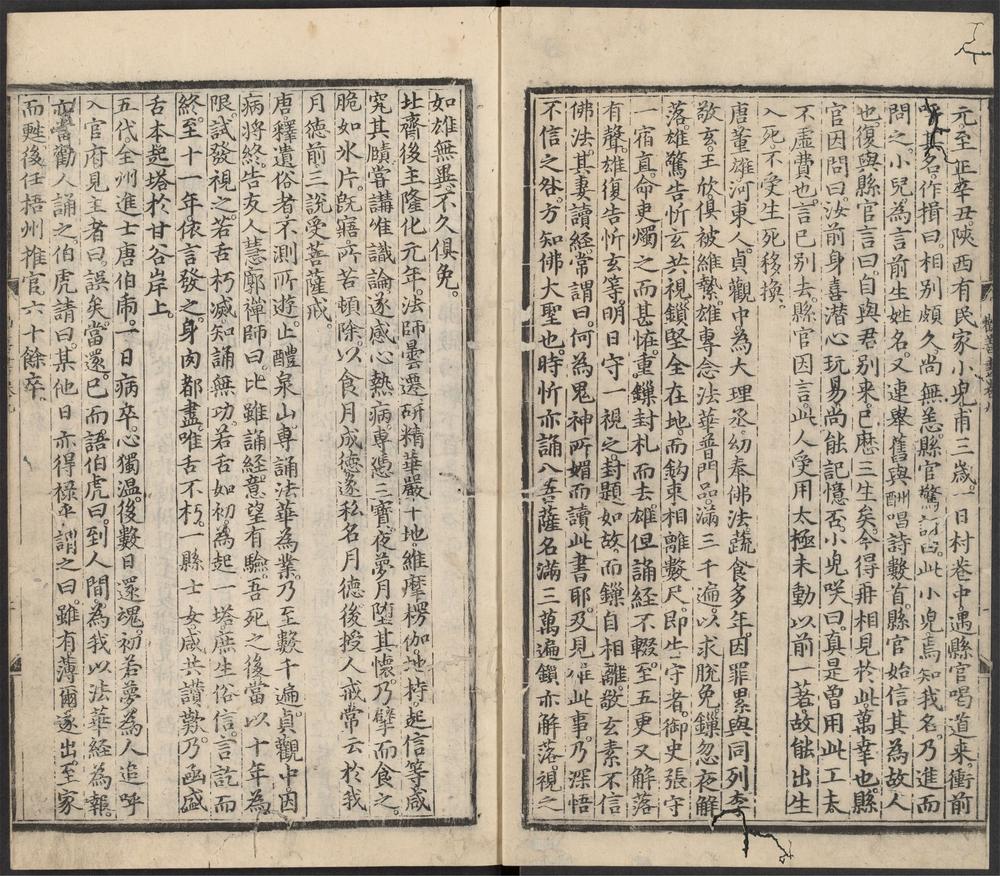 元至正辛丑。陝西有民家小兒甫三歲。一日村巷中。遇縣官喝道来。衝前
呼其名。作揖曰。相別頗久尚無恙。縣官驚訝曰。此小兒焉知我名。乃進而
問之。小兒為言前生姓名。又連舉舊與酬唱詩數首。縣官始信其為故人
也。復與縣官言曰。自與君別来。已歷三生矣。今得冊相見於此。萬幸也。縣
官因問曰。汝前身喜潜心玩易。尚能記憶否。小兒咲曰。真是曾用此工太
不虛費也。言已別去。縣官因言。此人受用太極未動以前一著。故能出生
入死。不受生死移換。
唐董雄河東人。貞觀中為大理丞。幼奉佛法。蔬食多年。因罪累與同列李
敬玄。王忻俱被維縶。雄專念法華普門品。滿三千遍。以求脫免。鏁忽夜解
落。雄驚告忻玄共視。鏁堅全在地。而鈎束相離數尺。即告守者。御史張守
一宿直。命吏燭之而甚恠。重鏁封札而去。雄但誦経不輟。至五更又解落
有聲。雄復告忻玄等。明日守一視之。封題如故。而鏁自相離。敬玄素不信
佛法。其妻讀経。常謂曰。何為鬼神所媚而讀此書耶。及見此事。乃深悟
不信之咎。方知佛大聖也。時忻亦誦八菩薩名滿三萬遍。鎖亦解落。視之
如雄無異。不久俱免。
北齊後主隆化元年。法師曇遷。研精華嚴十地維摩楞伽。地持。起信等。咸
究其賾。嘗講唯識論。遂感心熱病。專憑三寶。夜夢月墮其懷。乃擘而食之。
脆如氷片。旣寤。所苦頓除。以食月成德。遂私名月德。後授人戒。常云。於我
月德前三說受菩薩戒。
唐。釋遺俗者。不測所遊。止醴泉山。專誦法華為業。乃至數千遍。貞觀中。因
病將終。告友人慧廓禪師曰。比雖誦経。意望有驗。吾死之後。當以十年為
限。試發視之。若舌朽滅。知誦無功。若舌如初。為起一塔。庶生俗信。言訖而
終。至十一年。依言發之。身肉都盡。唯舌不朽。一縣士女。咸共讚歎。乃函盛
舌本。起塔於甘谷岸上。
五代。全州進士唐伯虎。一日病卒。心獨溫。後數日還魂。初若夢為人追呼
入官府。見主者曰。誤矣。當還。已而語伯虎曰。到人間為我以法華経為報。
亦當勸人誦之。伯虎請曰。某他日亦得祿乎。謂之曰。雖有薄爾。遂出。至家
而甦。後任梧州推官。六十餘卒。